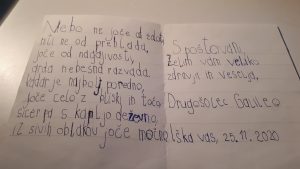 Nebo ne joče od žalosti,
niti ne od preblada,
joče od nagajivosti,
grda nebesna razvada.
kadar je najbolj poredno,
joče celo z bliski in točo
sicer pa s kapljo deževno,
iz sivih oblakov joče močno
Spoštovani,
želim vam veliko
zdravja in veselja,
Drugošolec Galileo
Iška vas, 25.11.2020